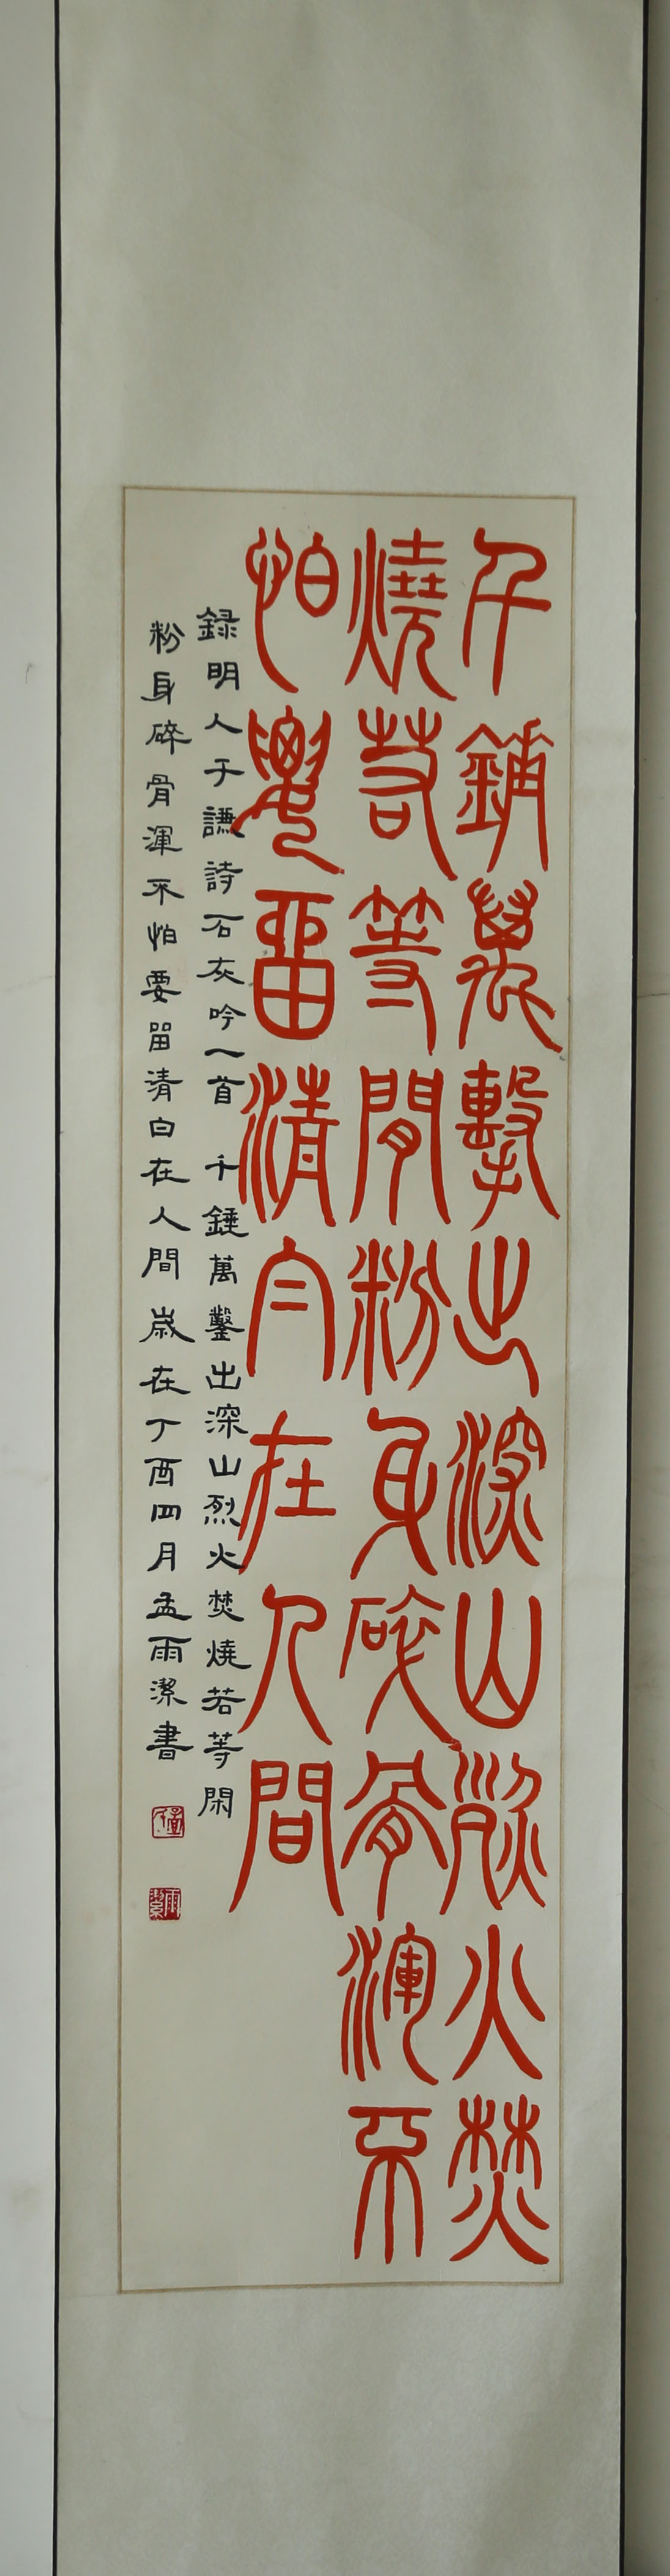 千錘萬擊出深山烈火焚
燒若等閒粉身碎骨渾不
怕要留清白在人間
錄明人于謙詩石灰吟一首 千錘萬鑿出深山烈火焚燒若等閑
粉身碎骨渾不怕要留清白在人間 歲在丁酉四月孟雨潔書
雨潔